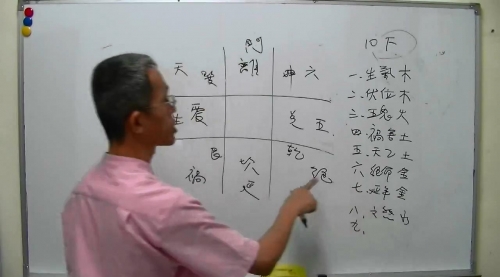 門
天 巽 離 坤 六
震 兌 五
艮 坎 乾
禍 延 絕
一.生氣木
二.伏位木
三.五鬼火
四.禍害土
五.天乙土
六.絕命金
七.延年金
八.文曲水
九.